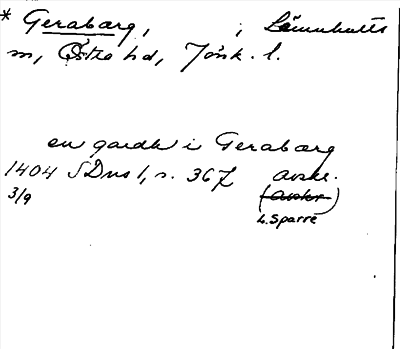 * Geraborg, ; Lännhults
sn, Östra hd, Jönk. l.
en gardh i Geraborg
1404 SDns 1, s. 367 avskr.
3/9 (avskr)
L. Sparre